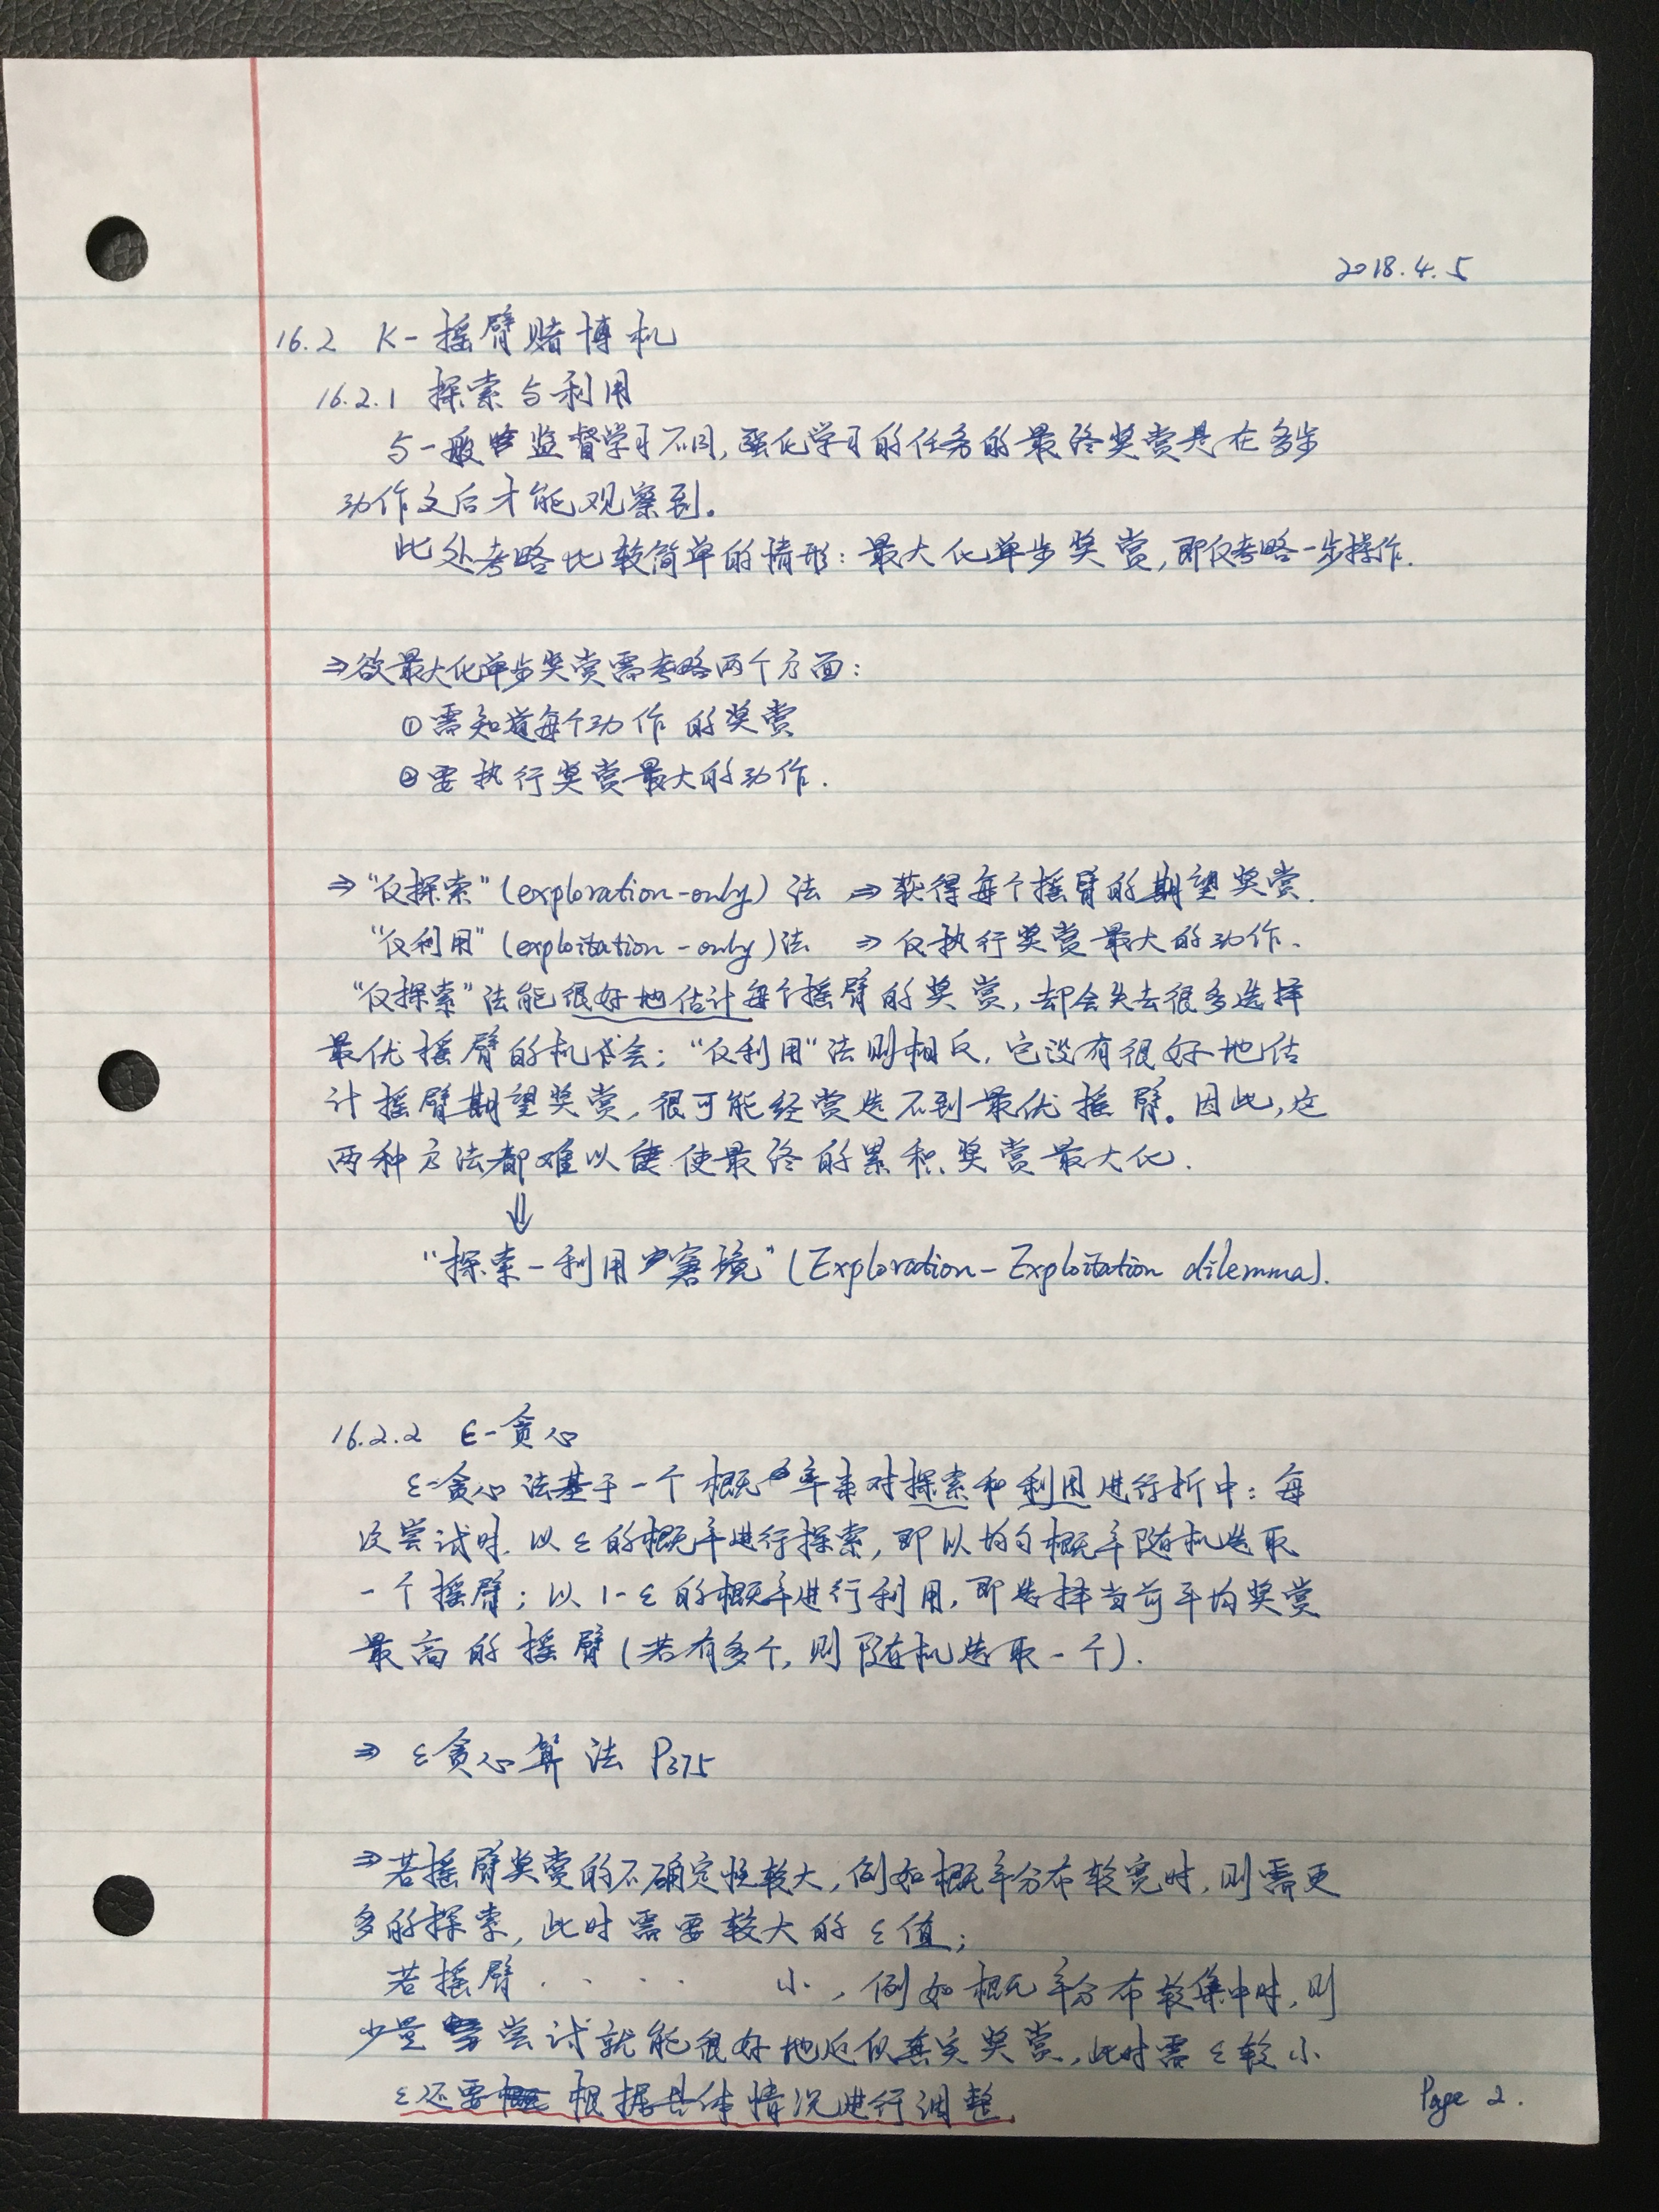 2018.4.5
16.2 K-摇臂赌博机
16.2.1 探索与利用
与一般监督学习不同,强化学习的任务的最终奖赏是在多步
动作之后才能观察到。
此处考略比较简单的情形:最大化单步奖赏,即仅考略一步操作.
⇒欲最大化单步奖赏需考略两个方面:
①需知道每个动作的奖赏
②要执行奖赏最大的动作.
⇒“仅探索”(exploration-only)法 ⇒获得每个摇臂的期望奖赏.
“仅利用”(exploitation-only)法 ⇒仅执行奖赏最大的动作.
“仅探索”法能很好地估计每个摇臂的奖赏,却会失去很多选择
最优摇臂的机会;“仅利用”法则相反,它没有很好地估
计摇臂期望奖赏,很可能经赏选不到最优摇臂。因此,这
两种方法都难以使最终的累积奖赏最大化.
⇓
“探索-利用窘境”(Exploration-Exploitation dilemma).
16.2.2 ϵ-贪心
ε-贪心法基于一个概率来对探索和利用进行折中:每
次尝试时.以ε的概率进行探索,即以均匀概率随机选取
一个摇臂;以1-ε的概率进行利用,即选择当前平均奖赏
最高的摇臂(若有多个,则随机选取一个).
⇒ ε贪心算法 P375
⇒若摇臂奖赏的不确定性较大,例如概率分布较宽时,则需更
多的探索,此时需要较大的ε值;
若摇臂 . . . . 小,例如概率分布较集中时,则
少量尝试就能很好地近似真实奖赏,此时需ε较小
ε还要根据具体情况进行调整.
Page 2.